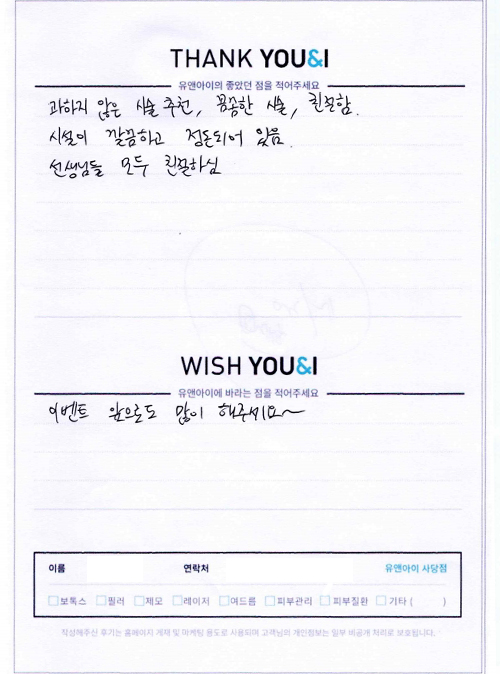 THANK YOU&I
유앤아이의 좋았던 점을 적어주세요
과하지 않은 시술 추천, 꼼꼼한 시술, 친절함.
시설이 깔끔하고 정돈되어 있음.
선생님들 모두 친절하심
WISH YOU&I
유앤아이에 바라는 점을 적어주세요
이벤트 앞으로도 많이 해주세요~
이름 연락처 유앤아이 사당점
보톡스 필러 제모 레이저 여드름 피부관리 피부질환 기타 ( )
작성해주신 후기는 홈페이지 게재 및 마케팅 용도로 사용되며 고객님의 개인정보는 일부 비공개 처리로 보호됩니다.